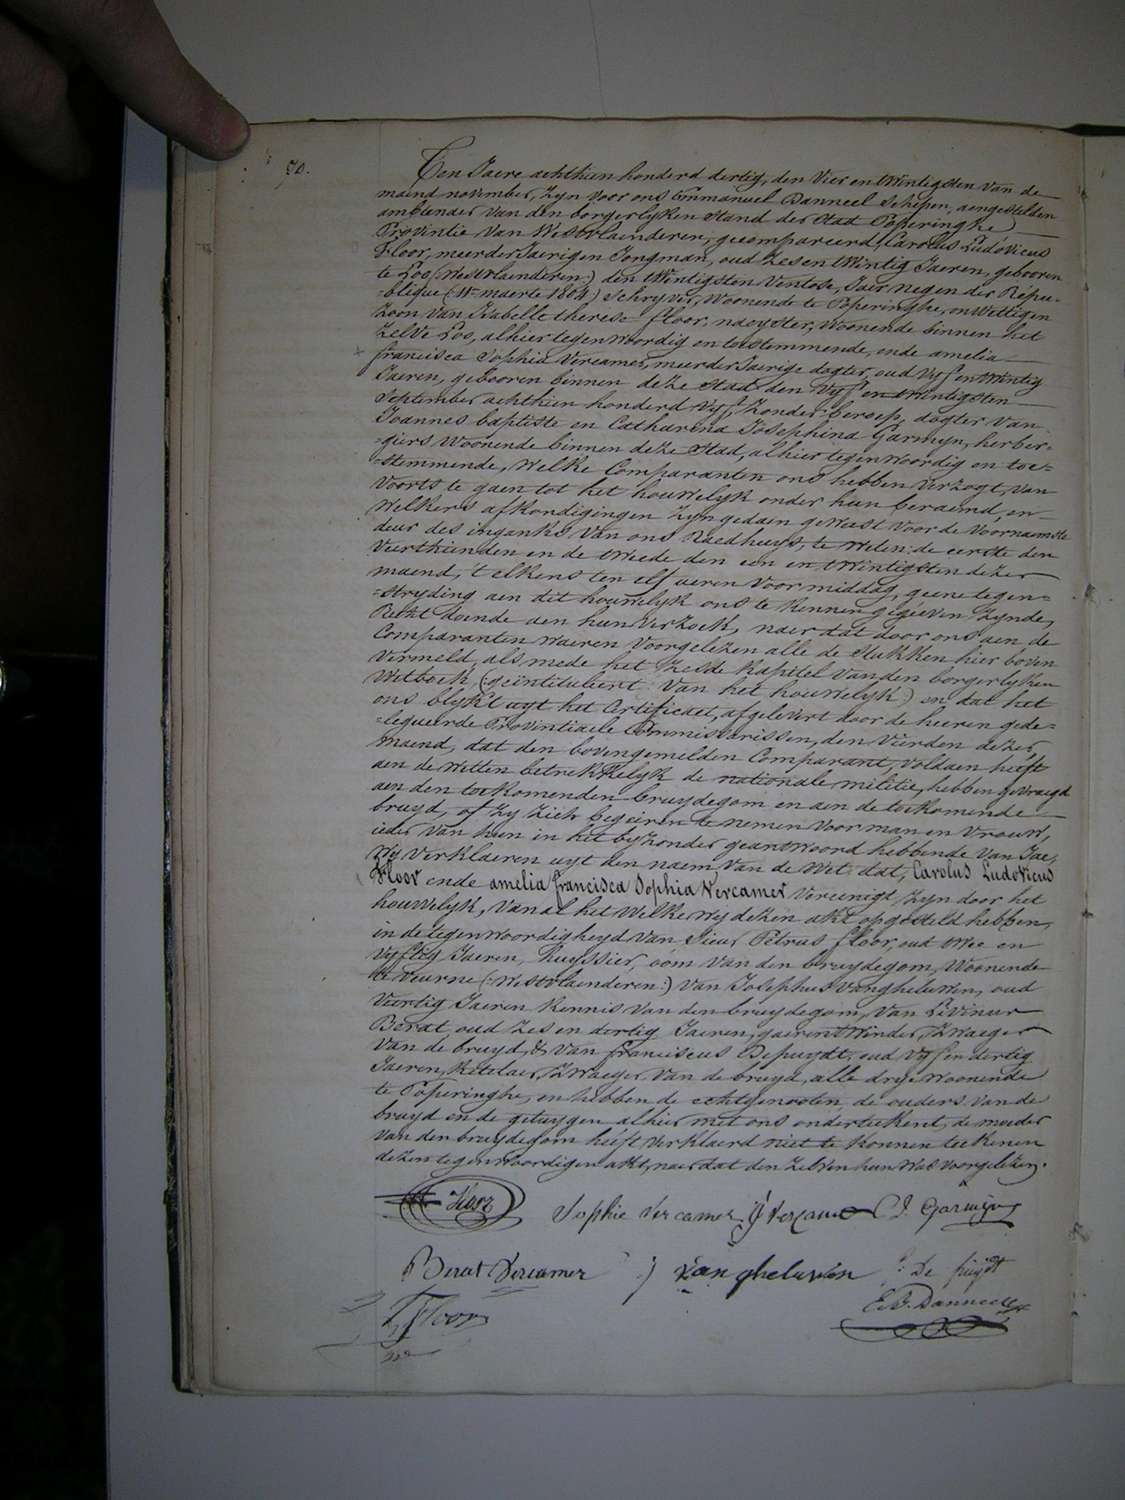 70.
Ten Jaere achthien honderd dertig, den vier en twintigsten van de
maend november, zyn voor ons Emmanuel Danneel Schepen, aengestelden
ambtenaer van den borgerlyken stand der stad Poperinghe
Provintie van Westvlaenderen, gecompareerd Carolus Ludovicus
Floor, meerderJaerigen Jongman, oud zes en twintig Jaeren, gebooren
te Loo (Westvlaenderen) den twintigsten Ventose, Jaer negen der Répu-
=blique (11 maerte 1804) Schryver, Woonende te Poperinghe, onwettigen
zoon van Isabelle therese floor, naeyster, Woonende binnen het
zelve Loo, alhier tegenwoordig en toestemmende, ende amelia
francisca Sophia Vercamer, meerderJaerige dogter, oud vyf en twintig
Jaeren, gebooren binnen deze Stad den vyf en twintigsten
September achthien honderd vyf, zonder beroep, dogter van
Joannes baptiste en Catharina Josephina Garmyn, herber=
=giers Woonende binnen deze Stad, alhier tegenwoordig en toe=
=stemmende, Welke Comparanten ons hebben verzogt, van
voorts te gaen tot het houwelyk onder hun beraemd, en
Welkers afkondigingen zyn gedaen geweest voor de voornaemste
deur des inganks van ons Raedhuys, te weten: de eerste den
veerthienden en de tweede den een en twintigsten dezer
maend, t'elkens ten elf ueren voor middag, geene tegen=
=stryding aen dit houwelyk ons te kennen gegeeven zynde,
Recht doende aen hun verzoek, naer dat door ons aen de
Comparanten waeren voorgelezen alle de stukken hier boven
vermeld, als mede het zesde kapitel van den borgerlyken
Wetboek, (geintituleert: Van het houwelyk) en dat het
ons blykt uyt het Certificaet, afgelevert door de heeren gede=
=legueerde Provintiaele Commissarissen, den vierden dezer
maend, dat den bovengemelden Comparant, voldaen heeft
aen de wetten betrekkelyk de nationale militie, hebben gevraegd
aen den toekomenden bruydegom en aen de toekomende
bruyd, of zy zich begeiren te nemen voor man en vrouw,
ieder van hun in het byzonder geantwoord hebbende van Jae,
Wy verklaeren uyt den naem van de Wet dat, Carolus Ludovicus
Floor ende amelia francisca Sophia Vercamer vereenigt zyn door het
houwelyk, van al het welke wy dezen akt opgesteld hebben,
in de tegenwoordigheyd van Sieur Petrus floor, oud twee en
vyftig Jaeren, huyssier, oom van den bruydegom, Woonende
te veurne (Westvlaenderen) van Josephus Vangheluwen, oud
veertig Jaeren kennis van den bruydegom, van Livinus
Berat oud zes en dertig Jaeren, gaerentwinder, zwaeger
van de bruyd, & van franciscus Depuydt, oud vyf en dertig
Jaeren, ketelaer, zwaeger van de bruyd, alle drye Woonende
te Poperinghe, en hebben de echtgenooten, de ouders van de
bruyd en de getuygen alhier met ons onderteekent, de moeder
van den bruydegom heeft verklaerd niet te konnen teekenen
dezen tegenwoordigen akt, naer dat den zelven hun was voorgelezen.
Floor Sophie Vercamer Vercamer C J Garmyn
Berat Vercamer J vangheluwen De puydt
P, Floor E. B. Danneel